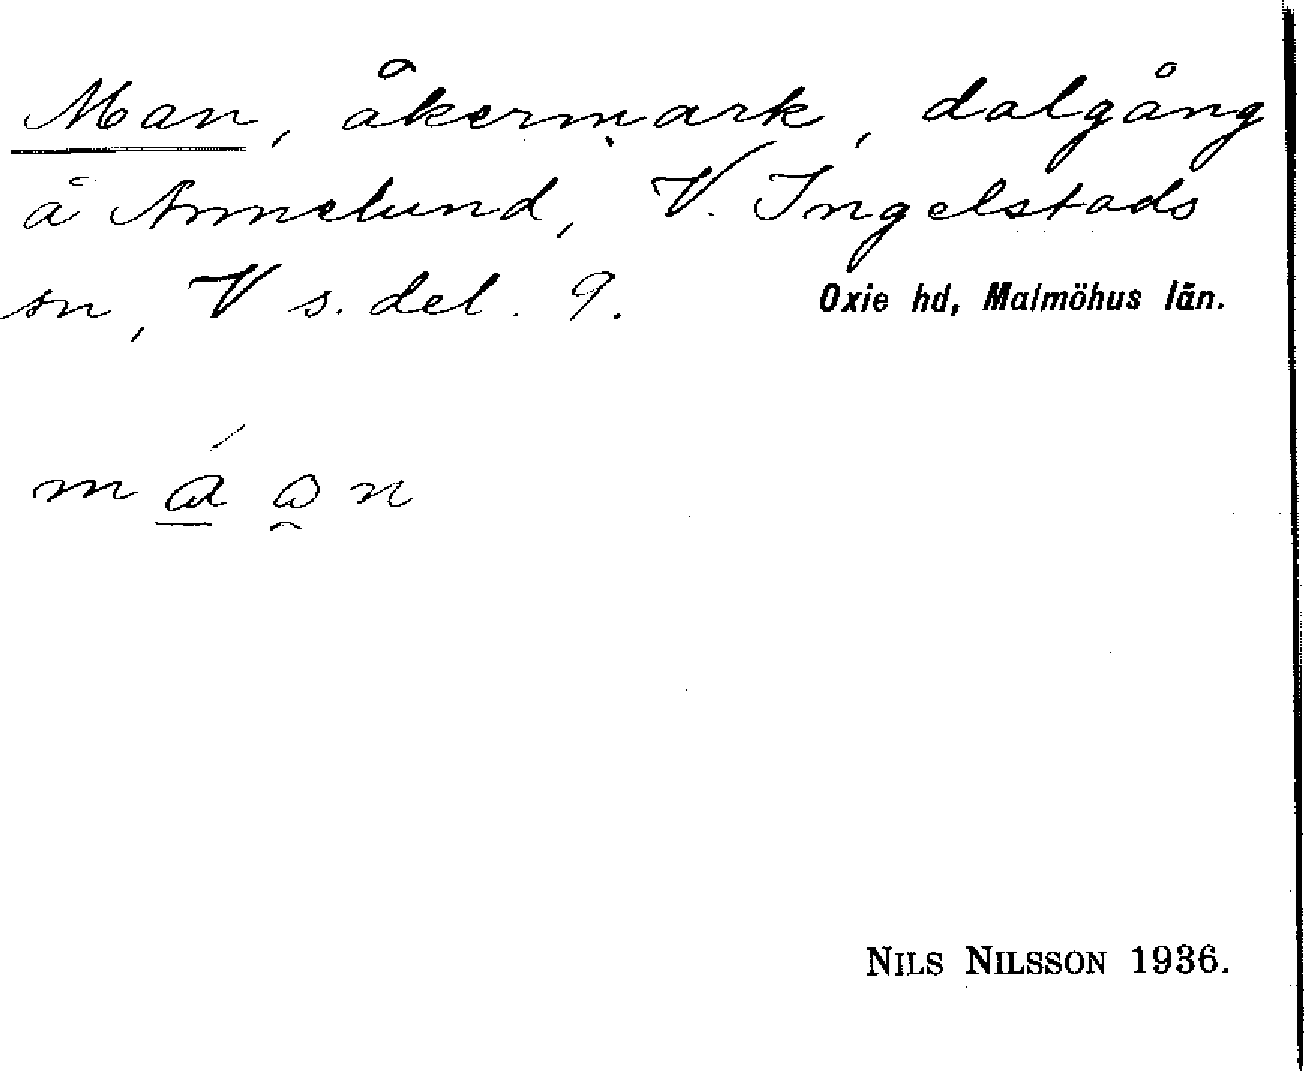 Man, åkermark, dalgång
å Annelund, V. Ingelstads
sn, V s. del. 9. Oxie hd, Malmöhus län.
NILS NILSSON 1936.